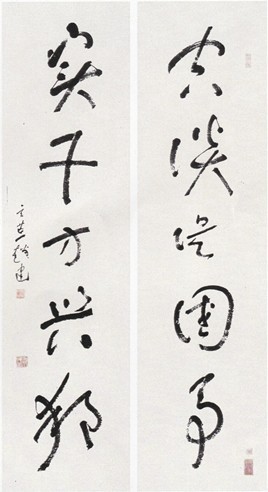 空谈误国事
实干方兴邦